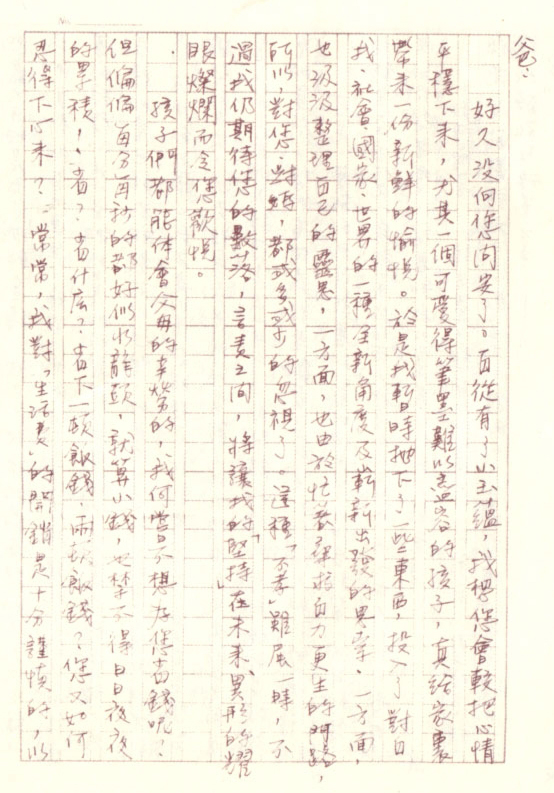 爸:
好久沒向您問安了。自從有了小玉蘊，我想您會較把心情
平穩下來，尤其一個可愛得筆墨難以形容的孩子，真給家裏
帶來一份新鮮的愉悅。於是我暫時拋下了一些東西，投入了對自
我、社會、國家、世界的一種全新角度及嶄新出發的思索。一方面，
也汲汲整理自己的靈思，一方面，也由於忙著尋求自力更生的門路，
所以，對您、對媽，都或多或少的忽視了。這種「不孝」雖屬一時，不
過我仍期待您的數落，言責之間，將讓我的「堅持」在未來、異形的耀
眼燦爛而令您歡悅。
孩子們都能体會父母的辛勞的，我何嘗不想為您省錢呢？
但偏偏每分每秒的都好似水龍頭，就算小錢，也禁不得日日夜夜
的累積，省？省什麼？省下一頓飯錢、兩頓飯錢？您又如何
忍得下心來？常常，我對「生活費」的開銷是十分謹慎的，以